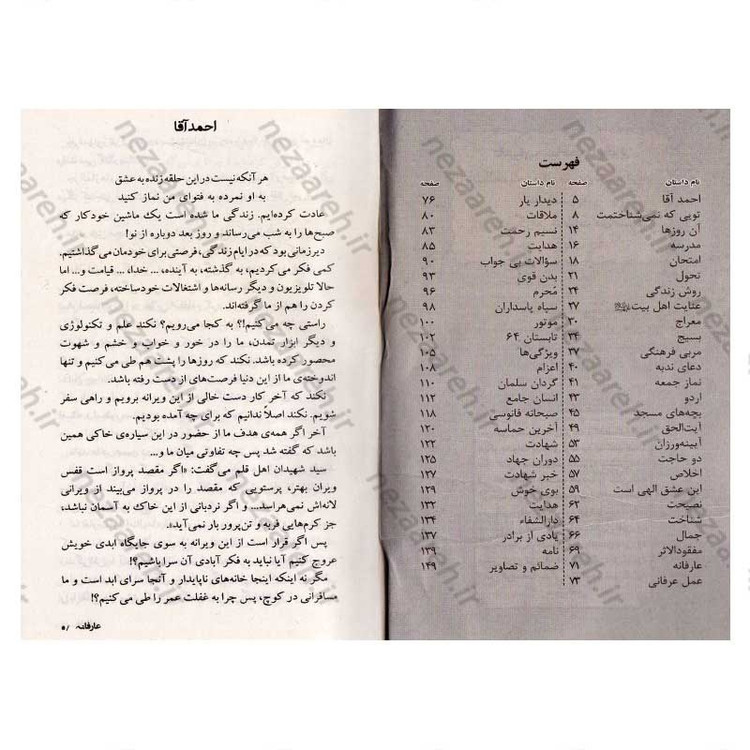 فهرست
نام داستان صفحه نام داستان صفحه
احمد آقا ۵ دیدار یار ۷۶
تویی که نمی‌شناختمت ۸ ملاقات ۸۰
آن روزها ۱۴ نسیم رحمت ۸۳
مدرسه ۱۶ هدایت ۸۵
امتحان ۱۸ سؤالات بی جواب ۹۰
تحول ۲۱ بدن قوی ۹۳
روش زندگی ۲۴ مُحرم ۹۶
عنایت اهل بیت ۲۷ سپاه پاسداران ۹۸
معراج ۳۰ موتور ۱۰۰
بسیج ۳۴ تابستان ۶۴ ۱۰۲
مربی فرهنگی ۳۷ ویژگی‌ها ۱۰۵
دعای ندبه ۴۰ اعزام ۱۰۸
نماز جمعه ۴۱ گردان سلمان ۱۱۰
اردو ۴۳ انسان جامع ۱۱۲
بچه‌های مسجد ۴۵ صبحانه فانوسی ۱۱۸
آیت‌الحق ۴۹ آخرین حماسه ۱۲۰
آیینه‌ورزان ۵۳ شهادت ۱۲۲
دو حاجت ۵۵ دوران جهاد ۱۲۵
اخلاص ۵۷ خبر شهادت ۱۲۷
این عشق الهی است ۵۹ بوی خوش ۱۲۹
نصیحت ۶۲ هدایت ۱۳۲
شناخت ۶۴ دارالشفاء ۱۳۴
جمال ۶۶ یادی از برادر ۱۳۷
مفقودالاثر ۶۹ نامه ۱۳۹
عارفانه ۷۱ ضمائم و تصاویر ۱۴۹
عمل عرفانی ۷۳
احمد آقا
هر آنکه نیست در این حلقه زنده به عشق
به او نمرده به فتوای من نماز کنید
عادت کرده‌ایم. زندگی ما شده است یک ماشین خودکار که
صبح‌ها را به شب می‌رساند و روز بعد دوباره از نو!
دیرزمانی بود که در ایام زندگی، فرصتی برای خودمان می‌گذاشتیم.
کمی فکر می‌کردیم، به گذشته، به آینده،... خدا،... قیامت و... اما
حالا تلویزیون و دیگر رسانه‌ها و اشتغالات خودساخته، فرصت فکر
کردن را هم از ما گرفته‌اند.
راستی چه می‌کنیم!؟ به کجا می‌رویم؟ نکند علم و تکنولوژی
و دیگر ابزار تمدن، ما را در خور و خواب و خشم و شهوت
محصور کرده باشد. نکند که روزها را پشت هم طی می‌کنیم و تنها
اندوخته‌ی ما از این دنیا فرصت‌های از دست رفته باشد.
نکند که آخر کار دست خالی از این ویرانه برویم و راهی سفر
شویم. نکند اصلاً ندانیم که برای چه آمده بودیم.
آخر اگر همه‌ی هدف ما از حضور در این سیاره‌ی خاکی همین
باشد که گفته شد پس چه تفاوتی میان ما و...
سید شهیدان اهل قلم می‌گفت: «اگر مقصد پرواز است قفس
ویران بهتر، پرستویی که مقصد را در پرواز می‌بیند از ویرانی
لانه‌اش نمی‌هراسد... و اگر نردبانی از این خاک به آسمان نباشد،
جز کرم‌هایی فربه و تن‌پرور بار نمی‌آید».
پس اگر قرار است از این ویرانه به سوی جایگاه ابدی خویش
عروج کنیم آیا نباید به فکر آبادی آن سرا باشیم؟!
مگر نه اینکه اینجا خانه‌های ناپایدار و آنجا سرای ابد است و ما
مسافرانی در کوچ، پس چرا به غفلت عمر را طی می‌کنیم؟!
عارفانه / ۵
nezaareh.ir